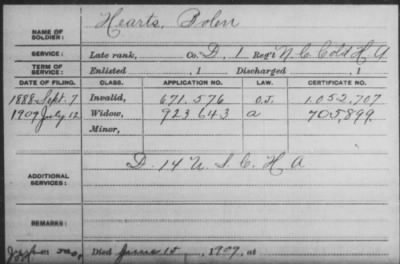 NAME OF SOLDIER: Hearts, Bolen
SERVICE: Late rank, Co. D, 1 Reg't N.C. Cold H A
TERM OF SERVICE: Enlisted , 1 Discharged , 1
DATE OF FILING. CLASS. APPLICATION NO. LAW. CERTIFICATE NO.
1888 Sept. 7 Invalid, 671.576 O.J. 1.052.707
1907 July 12 Widow, 923643 a 705,899
Minor,
ADDITIONAL SERVICES: D. 14 U.S.C. H A
REMARKS:
Died June 15, 1907, at